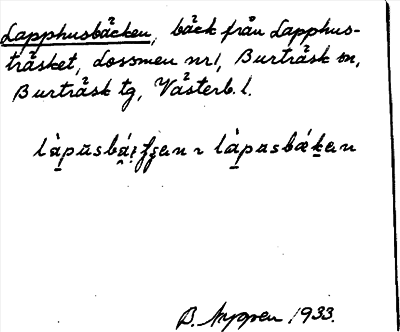 Lapphusbäcken, bäck från Lapphus-
träsket, Lossmen nr 1, Burträsk sn,
Burträsk tg, Västerb. l.
B. Nygren 1933.